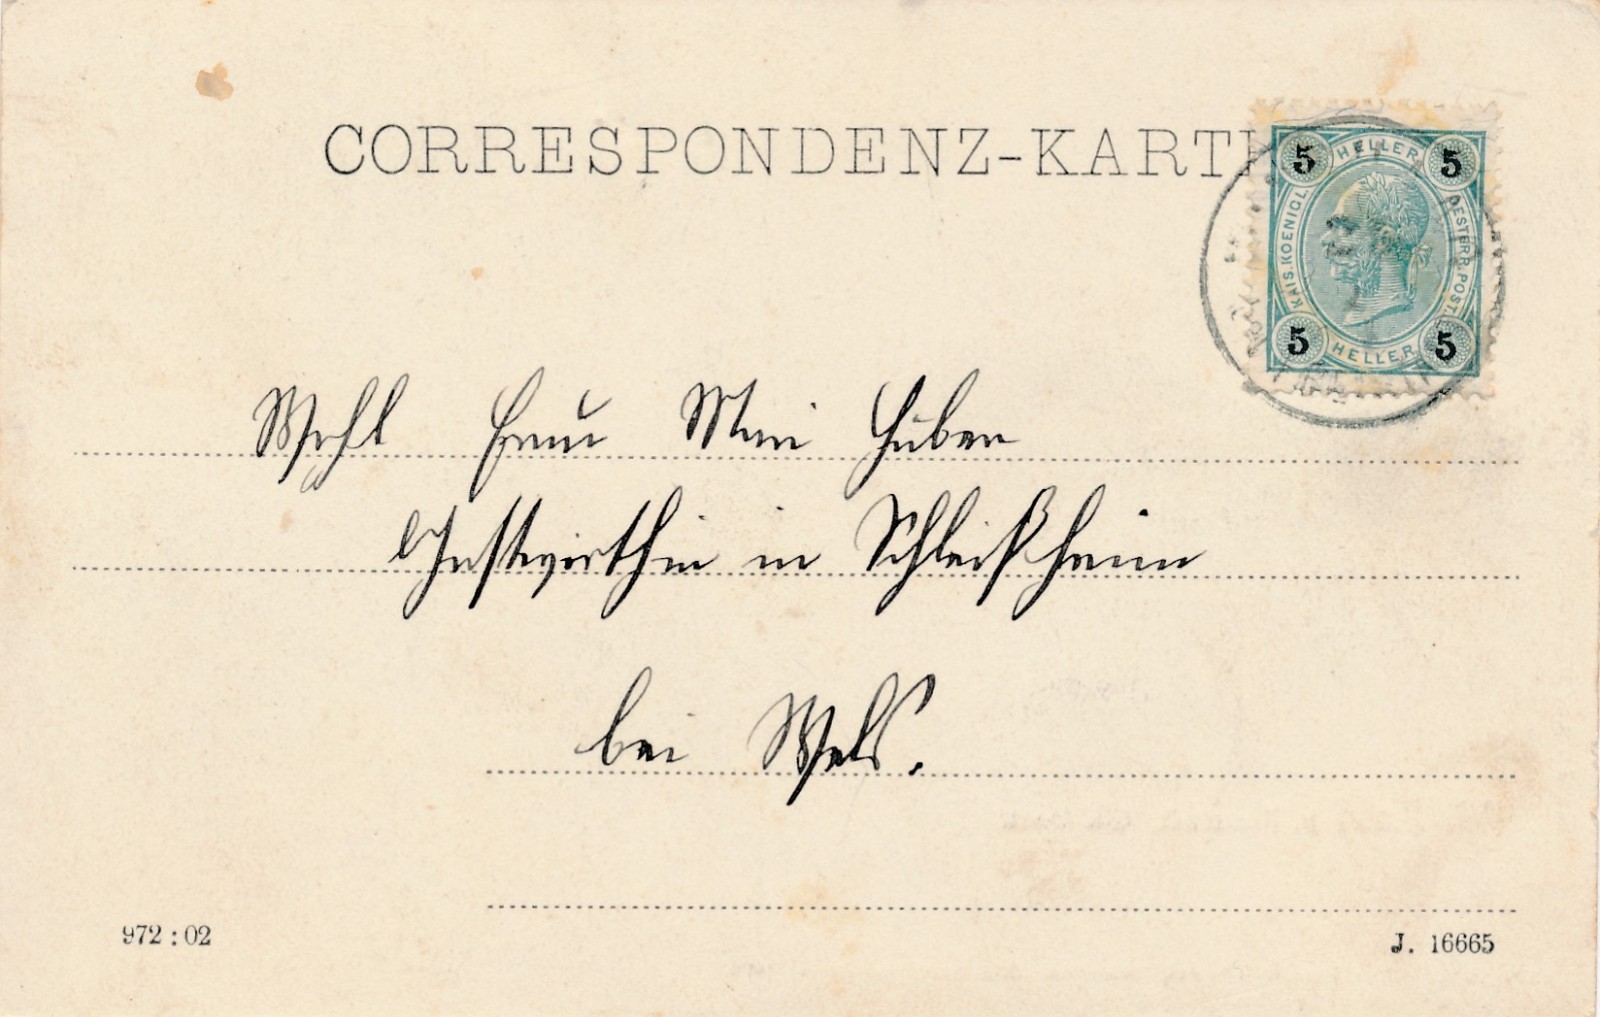 CORRESPONDENZ-KARTE
5 HELLER 5
KAIS. KOENIGL. OESTERR. POST.
5 HELLER 5
Wohl Frau Mari Huber
Gastwirthin in Schleißheim
bei Wels.
972 : 02
J. 16665